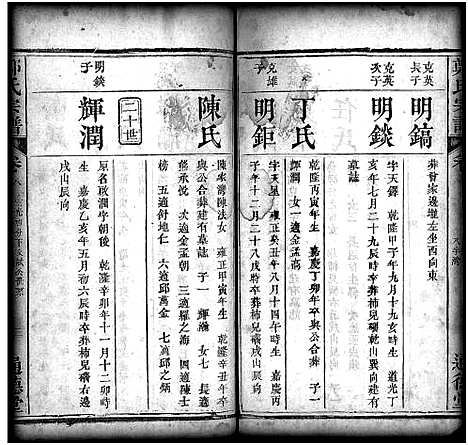 鄭氏宗譜
克英長子
明鎬
葬曾家邊壠左坐西向東
克英次子
明錟
字天鐸 乾隆甲子年九月十九亥時生 道光丁
亥年七月二十九辰時卒葬柿兒礦乾山巽向建有
墓誌
丁氏
乾隆丙寅年生 嘉慶丁卯年卒與公合葬 子一
輝潤 女一適金孟高
克雄子
明鉅
字天星 雍正 年八月十四午時生 嘉慶丙
子年十二月二十八戌時卒葬柿兒礦辰山戌向建有墓誌
陳氏
陳家灣陳法女 雍正甲寅年生 乾隆辛丑年卒
與公合葬建有墓誌 子一 輝 女七 長適
熊承悅 次適金 朝 三適羅之海 四適陳士
榜 五適舒地仁 六適邱萬金 七適邱之炳
二十世
明錟子
輝潤
原名啟潤字朝後 乾隆辛卯年十一月十二卯時
生 嘉慶乙亥年五月初六辰時卒葬柿兒礦右邊
戌山辰向
鄭氏宗譜
通德堂
通德堂